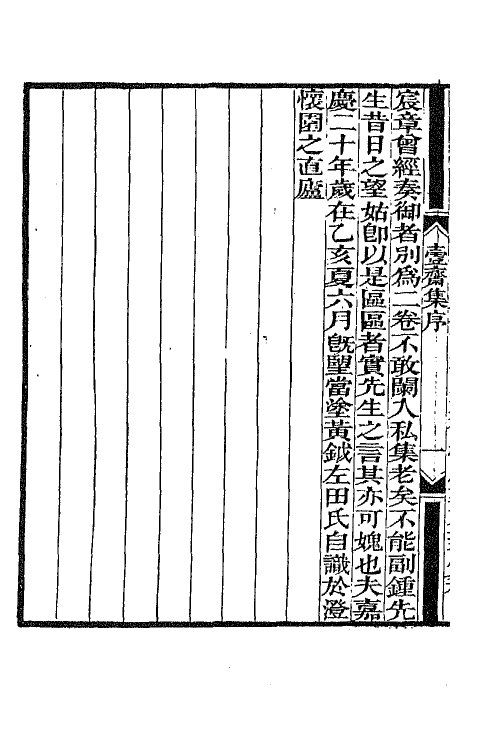 宸章曾經奏御者別爲二卷不敢闌入私集老矣不能副鍾先
生昔日之望姑卽以是區區者實先生之言其亦可媿也夫嘉
慶二十年歲在乙亥夏六月旣望當塗黃鉞左田氏自識於澄
懷園之直廬
壹齋集序
一